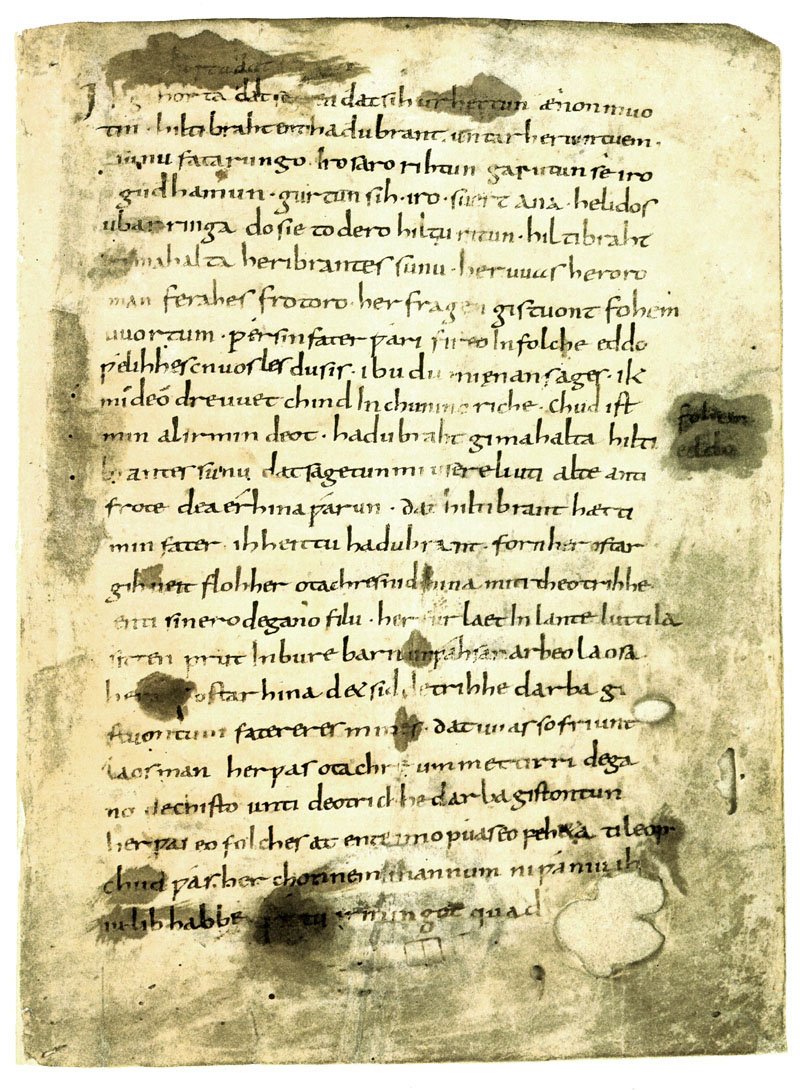 horta dat dat sih urhettun ænon muo
tin · hiltibraht enti hadubrant · untar heriun tuem ·
sunu fatarungo · iro saro rihtun garutun sê iro
gudhamun · gurtun sih · iro · suert ana · helidos
ubar ringa do sie to dero hiltu ritun · hiltibraht
gimahalta heribrantes sunu · her uuas heroro
man ferahes frotoro · her fragen gistuont fohem
uuortum · ƿer sin fater ƿari fireo In folche eddo
ƿelihhes cnuosles du sis · ibu du mi enan sages · ik
mideo dre uuet chind In chunincriche · chud ist
min al irmin deot · hadubraht gimahalta hilti
brantes sunu dat sagetun mi usere liuti alte anti
frote dea érhina ƿarun · dat hiltibrant hætti
min fater · ih heittu hadubrant · forn her ostar
gihueit floh her otachres nid hina miti theotrihhe
enti sinero degano filu · her furlaet In lante luttila
sitten prut In bure barn unƿahsan arbeo laosa
ostar hina d& sid detrihhe darba gi
stuontum fatereres mines · dat uuas so friunt
laos man her ƿas otachre ummettirri dega
no dechisto unti deotrichhe darba gistontun
her ƿas eo folches at ente imo ƿuas eo feh&a ti leop
chud ƿas her chonnem mannum ni ƿaniu ih
iu lib habbe irmingot quad
fohem
eddo